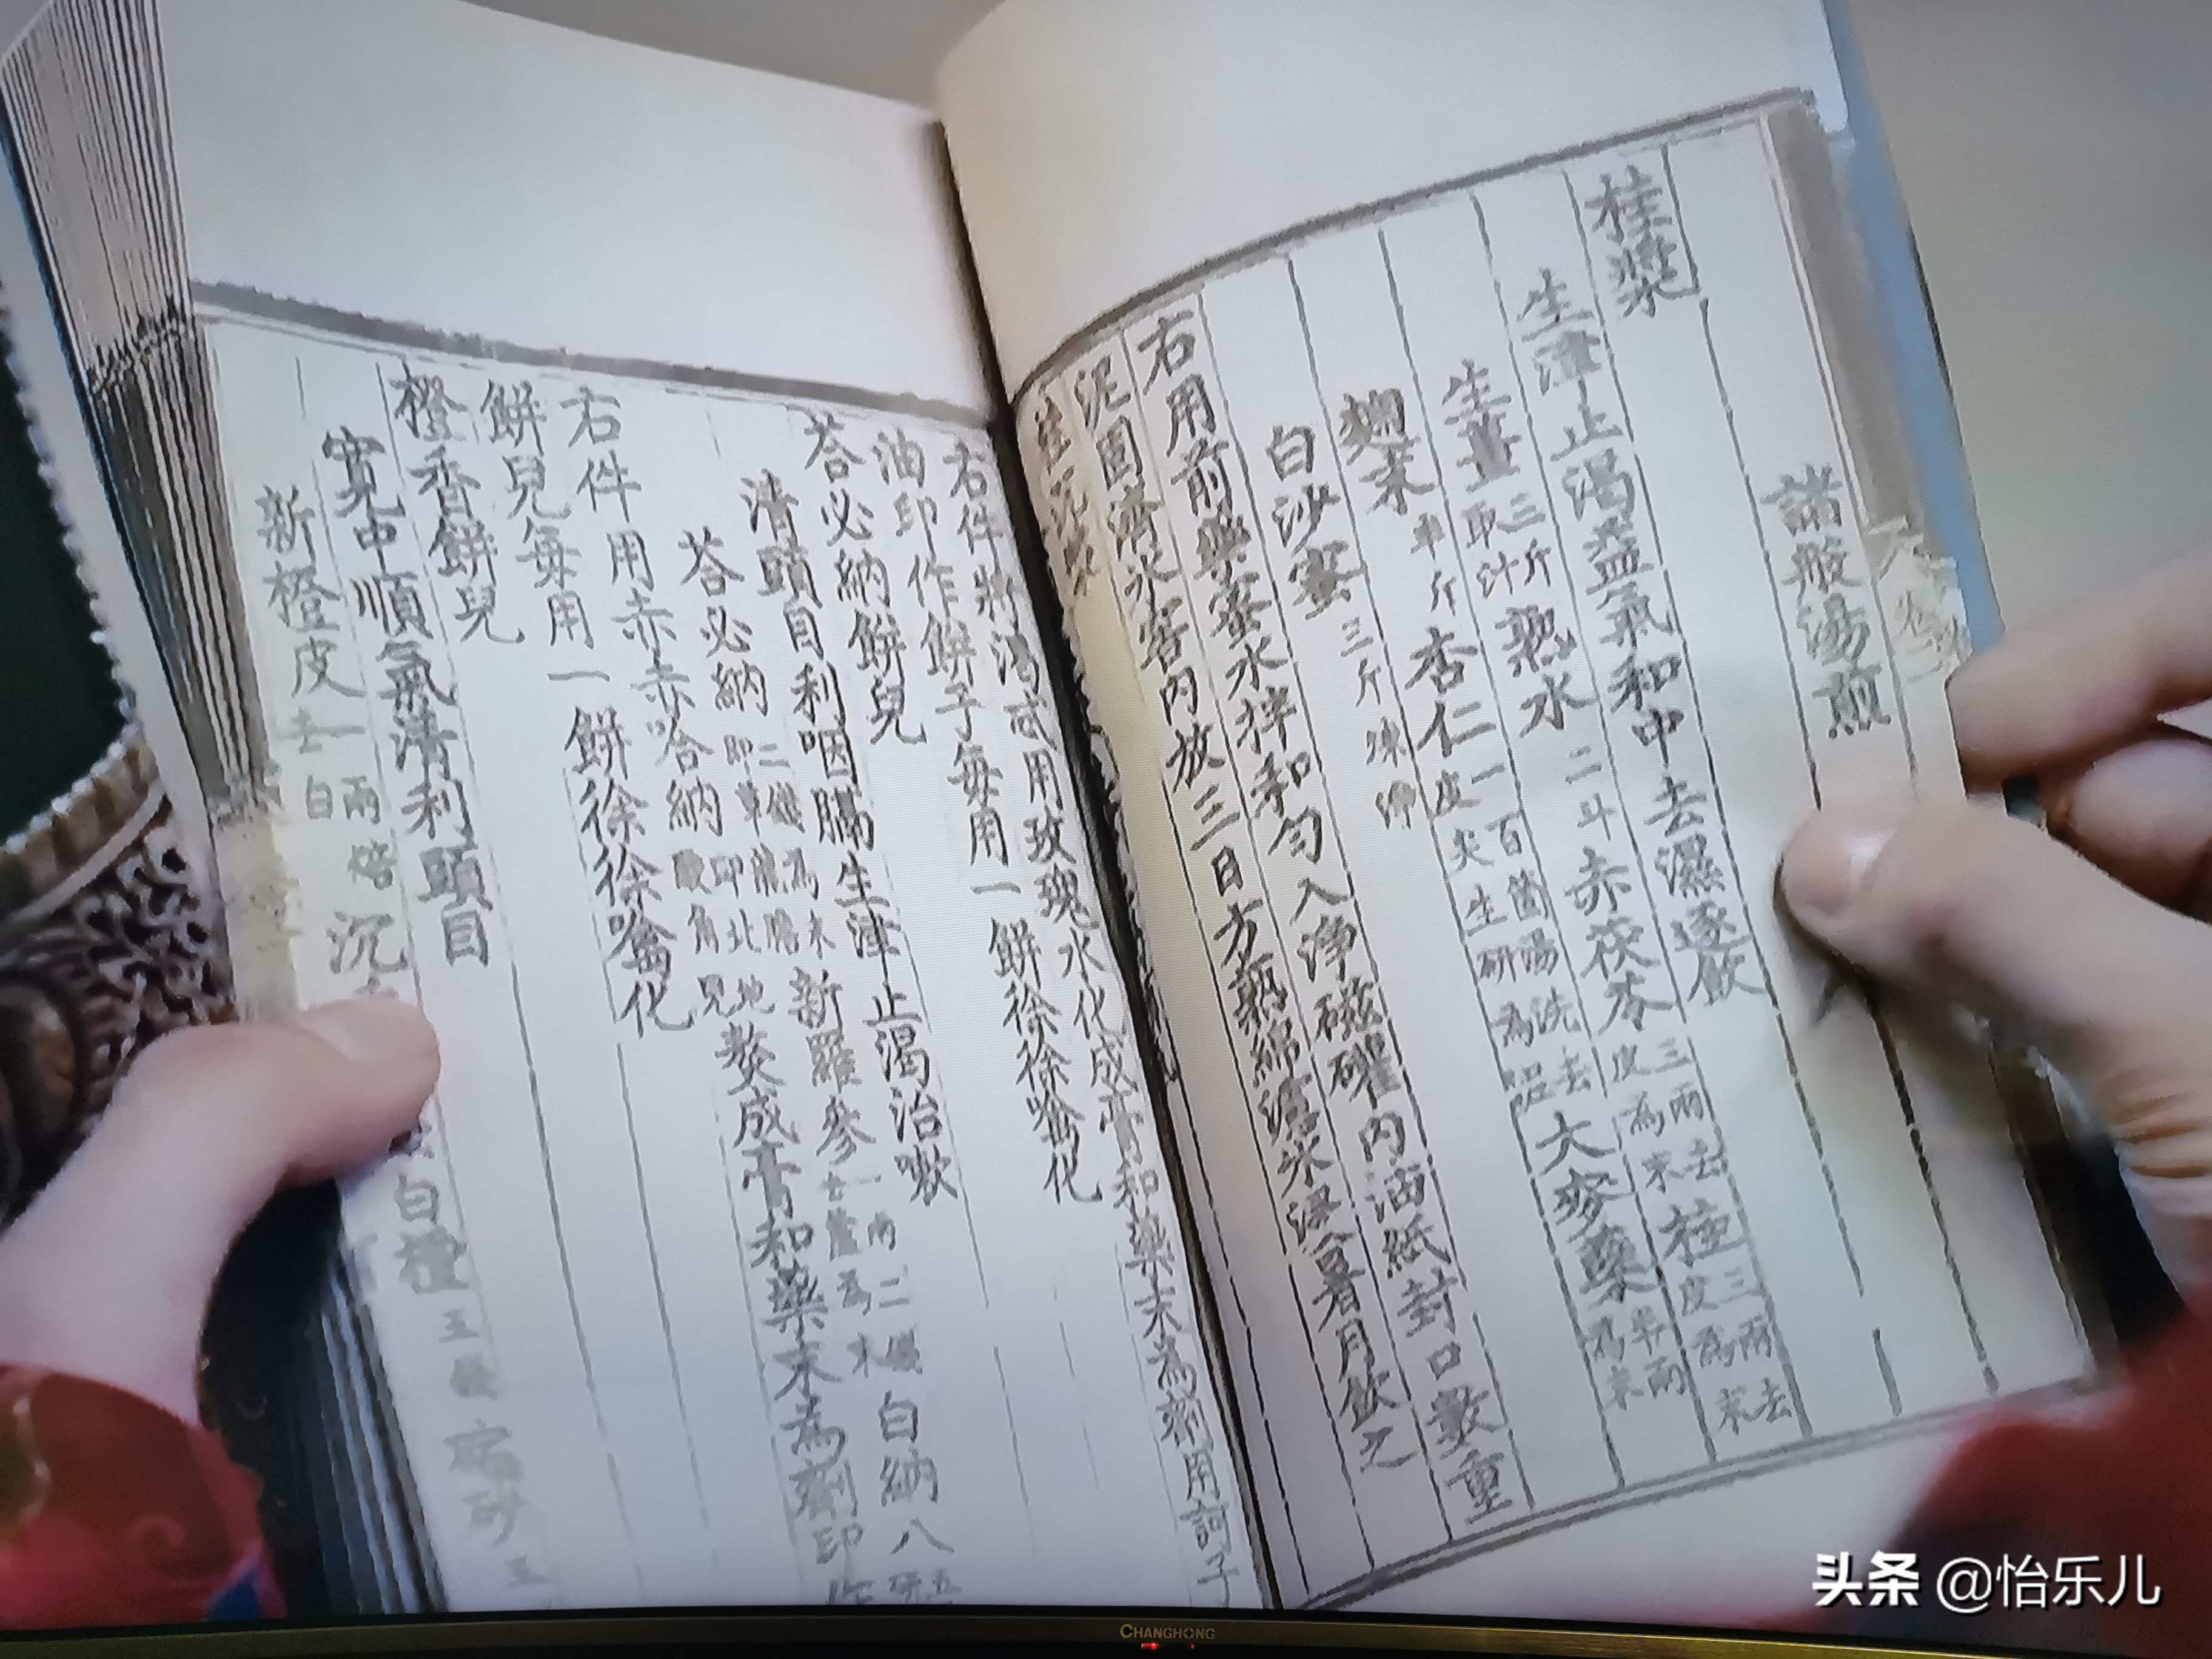 諸般湯煎
桂漿
生津止渴益氣和中去濕逐飲
生薑三斤取汁 熟水二斗 赤茯苓三兩去皮為末 桂三兩去皮為末
麯末半斤 杏仁一百箇湯洗去皮尖生研為泥 大麥糵半兩為末
白沙蜜三斤煉淨
右用前藥蜜水拌和勻入淨磁罐內油紙封口數重
泥固濟冰窖內放三日方熟綿濾冰浸暑月飲之
右件將渴忒用玫瑰水化成膏和藥末為劑用訶子
油印作餅子每用一餅徐徐噙化
荅必納餅兒
清頭目利咽膈生津止渴治嗽
荅必納二錢為末即草龍膽 新羅參一兩去蘆為末 白納八
赤赤哈納即北地酸角兒 熬成膏和藥末為劑印作
右件用赤赤哈納
餅兒每用一餅徐徐噙化
橙香餅兒
寬中順氣清利頭目
新橙皮一兩焙去白 沉 白 砂
头条 @怡乐儿
CHANGHONG